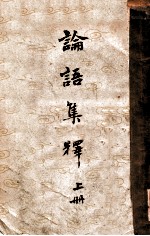 論語集釋 上册